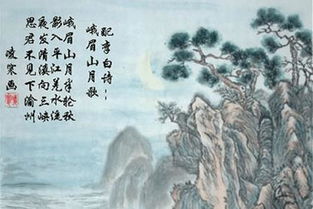 配李白诗：
峨眉山月歌
峨眉山月半轮秋
影入平江羌水流
夜发清溪向三峡
思君不见下渝州
寒画